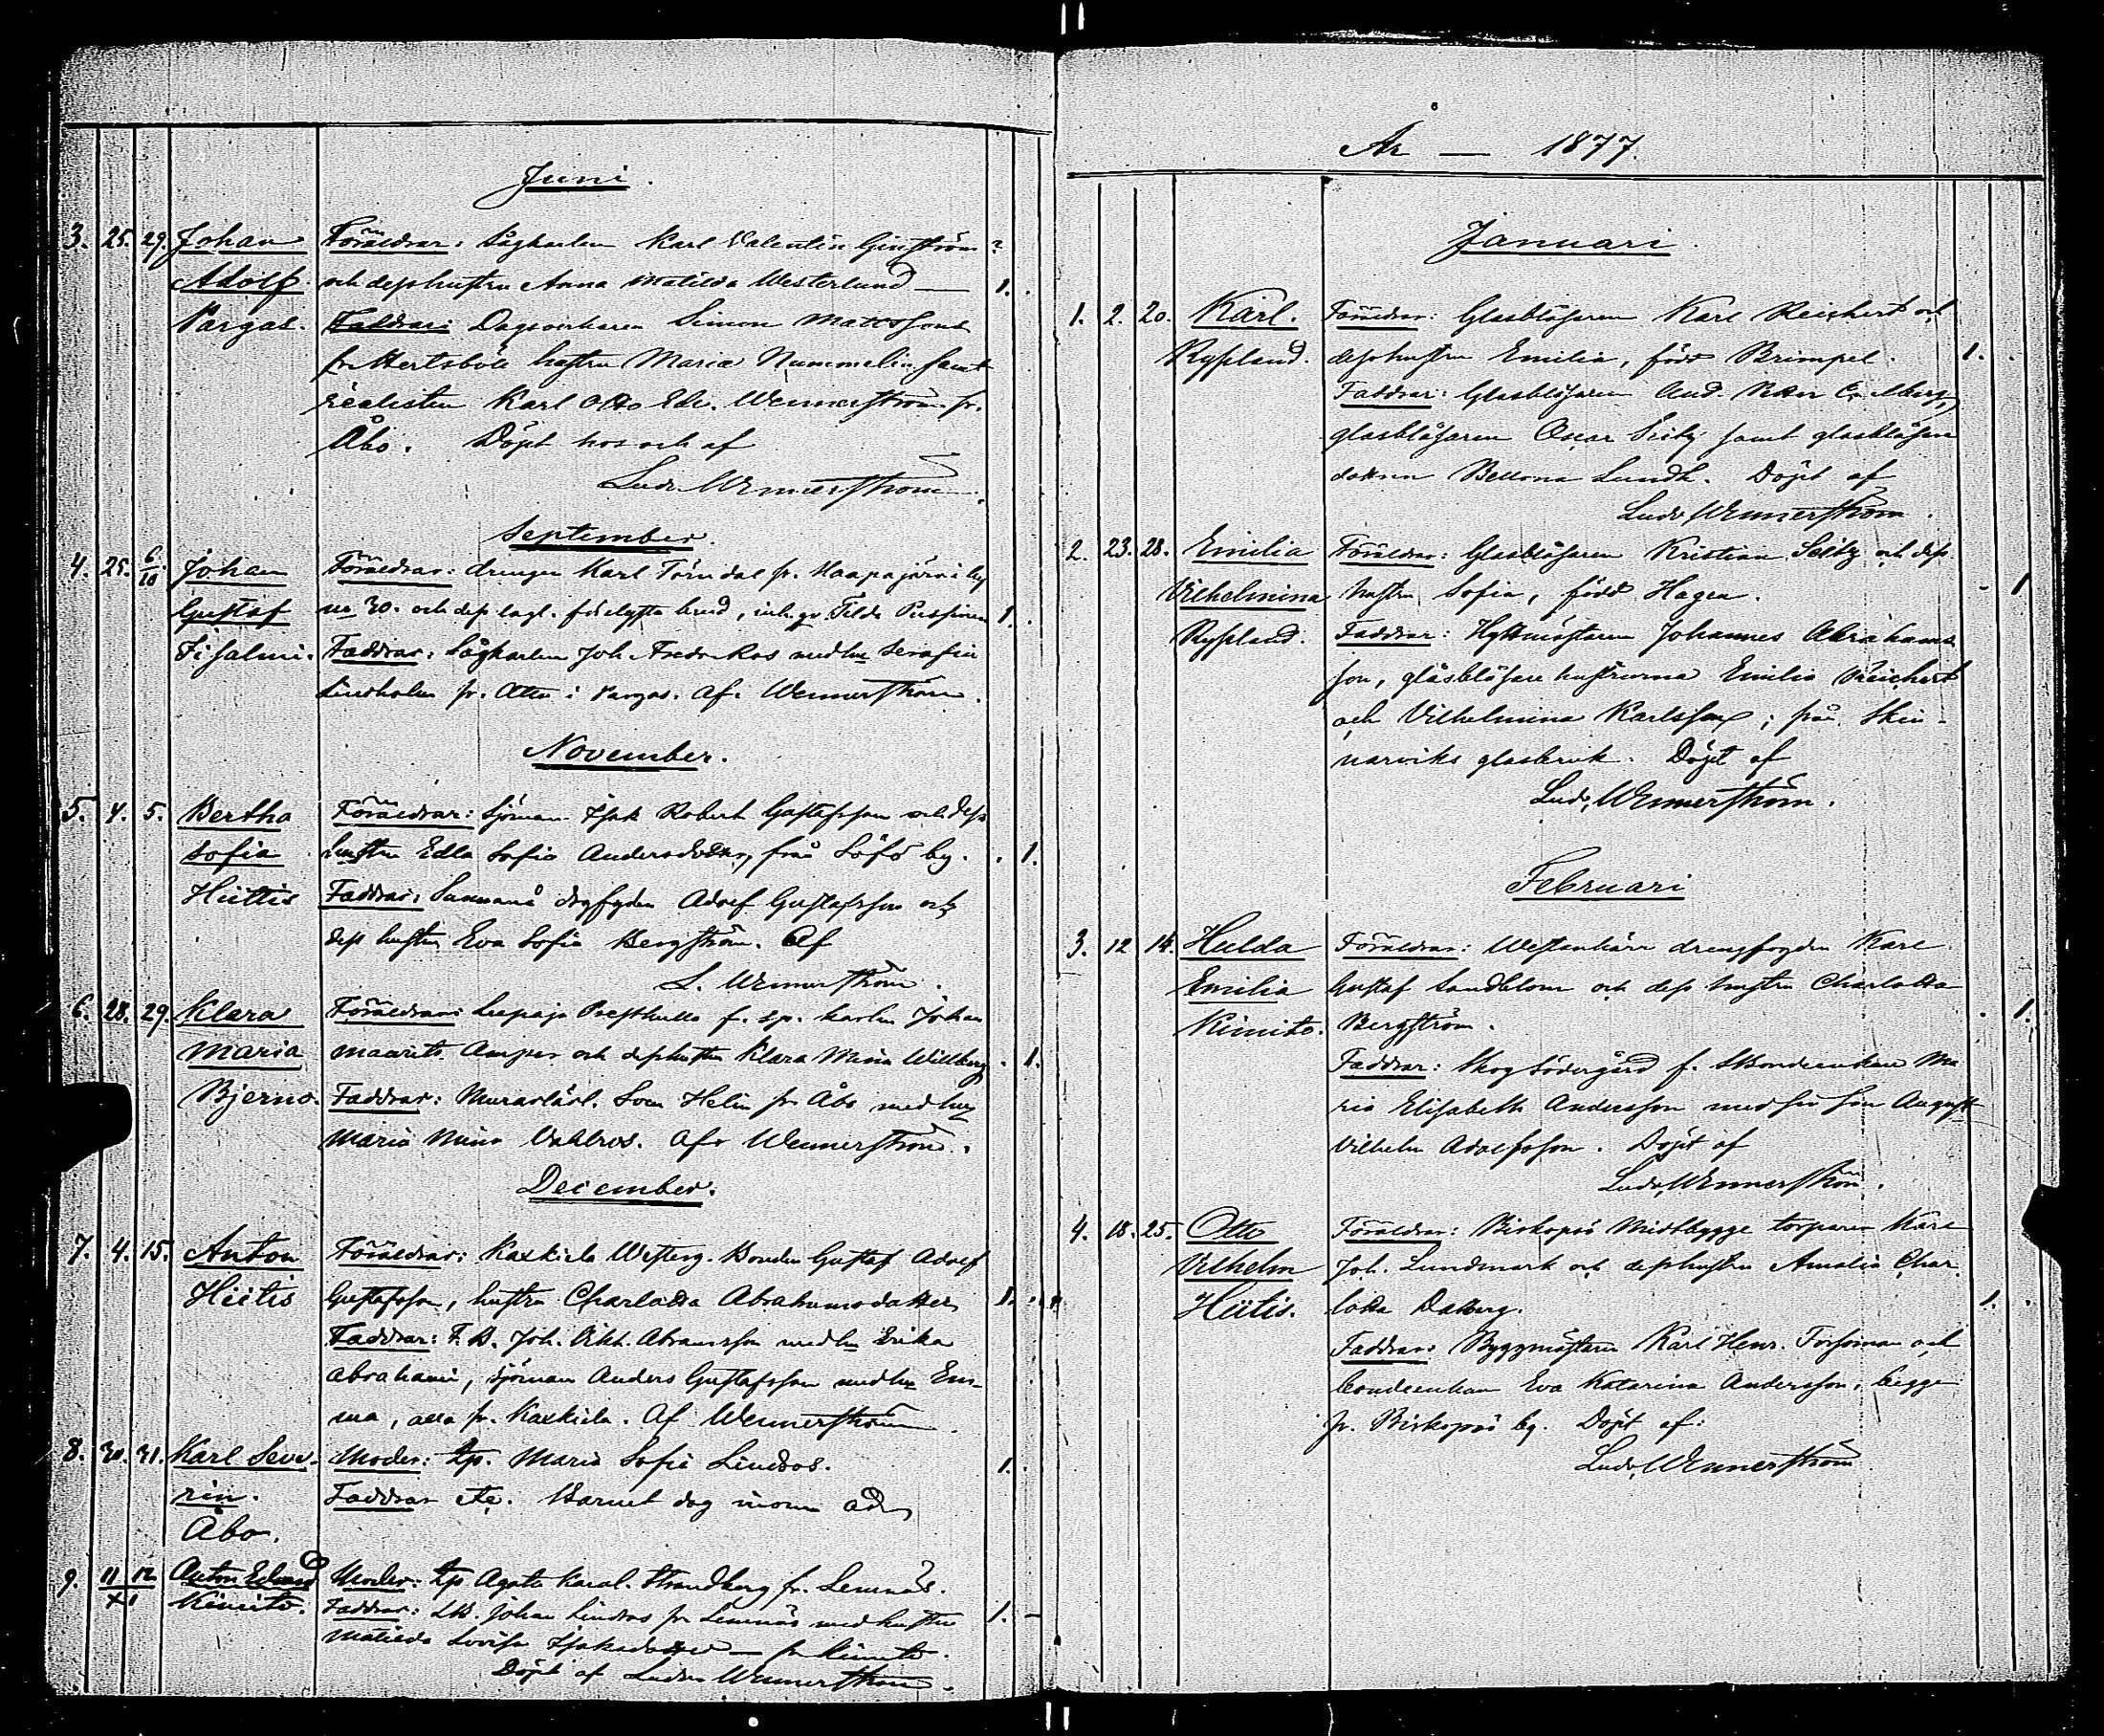 Juni.
3. 25. 29. Johan Föräldrar: Sågkarlen Karl Valentin
Adolf och dess hustru Anna Matilda Westerlund — 1.
Pargas. Faddrar: Dagsverkaren Simon Mattsson
fr. hustru Maria Nummelin samt
realisten Karl Otto Edv. Wennerström fr.
Åbo. Döpt hos och af
Ludv. Wennerström.
September.
4. 25. 6/10 Johan Föräldrar: drengen Karl Törndal fr. Haapajärvi by
Gustaf no 30. och dess lagl. förlofvade brud, inh. Tilda 1.
Iisalmi. Faddrar: Sågkarlen Joh. Fredr. Ros med hu Serafia
Lindholm fr. Attu i Pargas. Af Wennerström.
November.
5. 4. 5. Bertha Föräldrar: Sjöman Isak Robert Gustafsson och dess
Sofia hustru Edla Sofia Andersdotter, från by. 1.
Hiittis Faddrar: Adolf Gustafsson och
dess hustru Eva Sofia Bergström. Af
L. Wennerström.
6. 28. 29. Klara Föräldrar: f. sp. karlen Johan
Maria och dess hustru Klara Mina Willberg 1.
Bjerno. Faddrar: Helin fr. Åbo med hu
Maria Mina Af Wennerström.
December.
7. 4. 15. Anton Föräldrar: Kaxkiela Westerg. Bonden Gustaf Adolf
Hiitis Gustafsson, hustru Charlotta Abrahamsdotter 1.
Faddrar: F. B. Joh. Vikt. Abramsson med hu Erika
sjöman Anders Gustafsson med hu Em-
ma, alla fr. Kaxkiela. Af Wennerström
8. 30. 31. Karl Seve- Moder: Maria Sofia Lindros. 1.
rin. Faddrar etc. Barnet dog
Åbo.
9. 11 12 Anton Edvard Moder: Agata Karol. Strandberg fr. Lemnäs.
XI Kimito. Faddrar: Johan Lindros fr. Lemnäs med hustru 1. -
Matilda Lovisa Isaksdotter — fr. Kimito.
Döpt af Ludv. Wennerström.
År — 1877.
Januari.
1. 2. 20. Karl. Föräldrar: Glasblåsaren Karl Reichert och
Ryssland. dess hustru Emilia, född Brimpel. 1.
Faddrar: Glasblåsaren And. Viktor
glasblåsaren Oscar Seitz samt glasblåsare
dottern Bellona Lundh. Döpt af
Ludv. Wennerström.
2. 23. 28. Emilia Föräldrar: Glasblåsaren Kristian Seitz och dess
Vilhelmina hustru Sofia, född Hagen. - 1
Ryssland. Faddrar: Hyttmästaren Johannes Abrahams-
son, glasblåsare hustrurna Emilia Reichert
och Vilhelmina Karlsson; från Skin-
narviks glasbruk. Döpt af
Ludv. Wennerström.
Februari
3. 12 14. Hulda Föräldrar: drengfogden Karl
Emilia Gustaf Sandblom och dess hustru Charlotta 1.
Kimito. Bergström.
Faddrar: Skog Södergård f. Bondeenkan Ma-
ria Elisabeth Andersson med sin son August
Vilhelm Adolfsson. Döpt af
Ludv. Wennerström.
4. 18. 25. Otto Föräldrar: Biskopsö Midtbygge torparen Karl
Vilhelm Joh. Lundmark och dess hustru Amalia Char-
Hiitis. lotta Dalberg. 1.
Faddrar: Byggmästaren Karl Henr. Forsman och
bondeenkan Eva Katarina Andersson; begge
fr. Biskopsö by. Döpt af:
Ludv. Wennerström